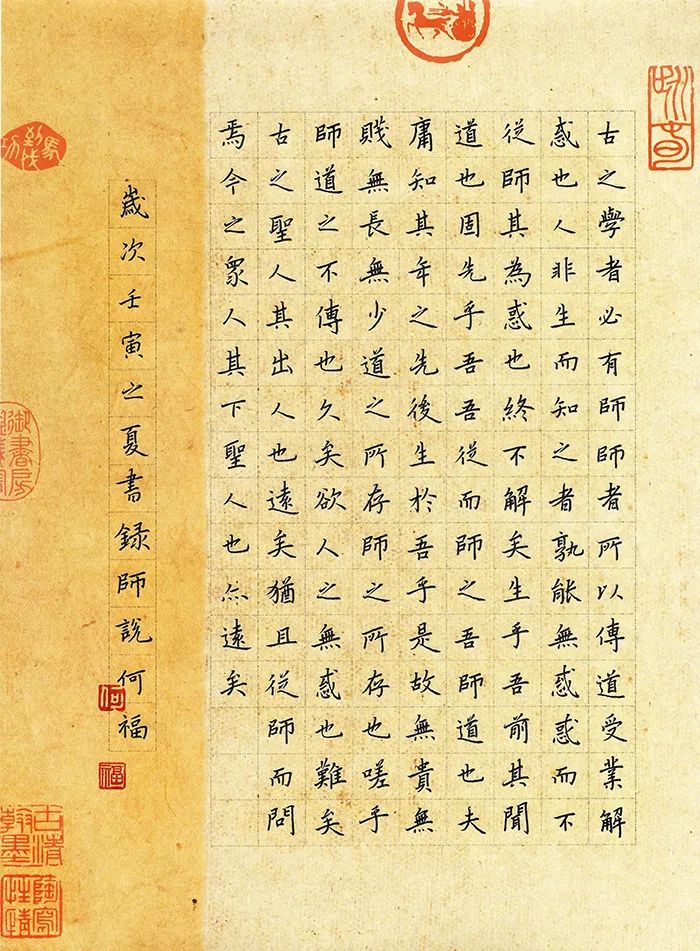 古之學者必有師師者所以傳道受業解
惑也人非生而知之者孰能無惑惑而不
從師其為惑也終不解矣生乎吾前其聞
道也固先乎吾吾從而師之吾師道也夫
庸知其年之先後生於吾乎是故無貴無
賤無長無少道之所存師之所存也嗟乎
師道之不傳也久矣欲人之無惑也難矣
古之聖人其出人也遠矣猶且從師而問
焉今之眾人其下聖人也亦遠矣
歲次壬寅之夏書録師說何福
何
福
御書房
陶寫性情